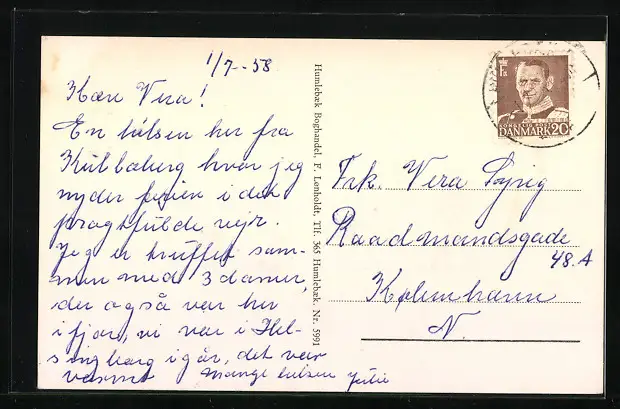 1/7-58
Kære Vera!
En hilsen her fra
hvor jeg
nyder ferien i det
pragtfulde vejr.
Jeg er truffet sam-
men med 3 damer,
der også var her
i fjor, vi var i Hel-
singborg i går, det var
varmt Mange hilsen Julie
Humlebæk Boghandel, F. Lønholdt. Tlf. 365 Humlebæk. Nr. 5991
DANMARK 20
Frk. Vera
Raadmandsgade
48.A
København
N.